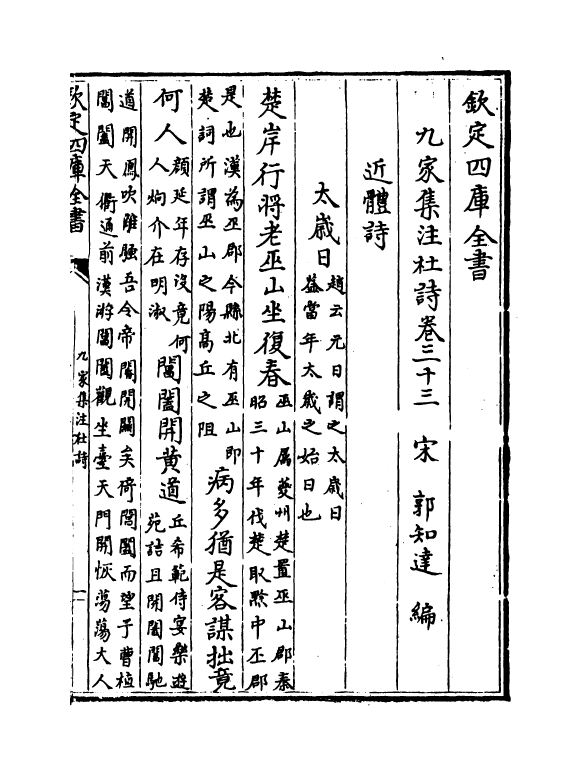 欽定四庫全書
九家集注杜詩卷三十三　宋　郭知達　編
近體詩
太歲日趙云元日謂之太歲日
蓋當年太歲之始日也
楚岸行將老巫山坐復春巫山属夔州楚置巫山郡秦
昭三十年伐楚取黔中巫郡
是也漢為巫郡今縣北有巫山即
楚詞所謂巫山之陽高丘之阻病多猶是客謀拙竟
何人顔延年存沒竟何
人炯介在明淑閶闔開黄道丘希範侍宴樂遊
苑詩詰旦閶闔開馳
道開鳳吹雎騷吾令帝閽開闗矣倚閶闔而望予曹植
閶闔天衢通前漢游閶闔觀玉臺天門開恢蕩蕩大人
欽定四庫全書
九家集注杜詩
一